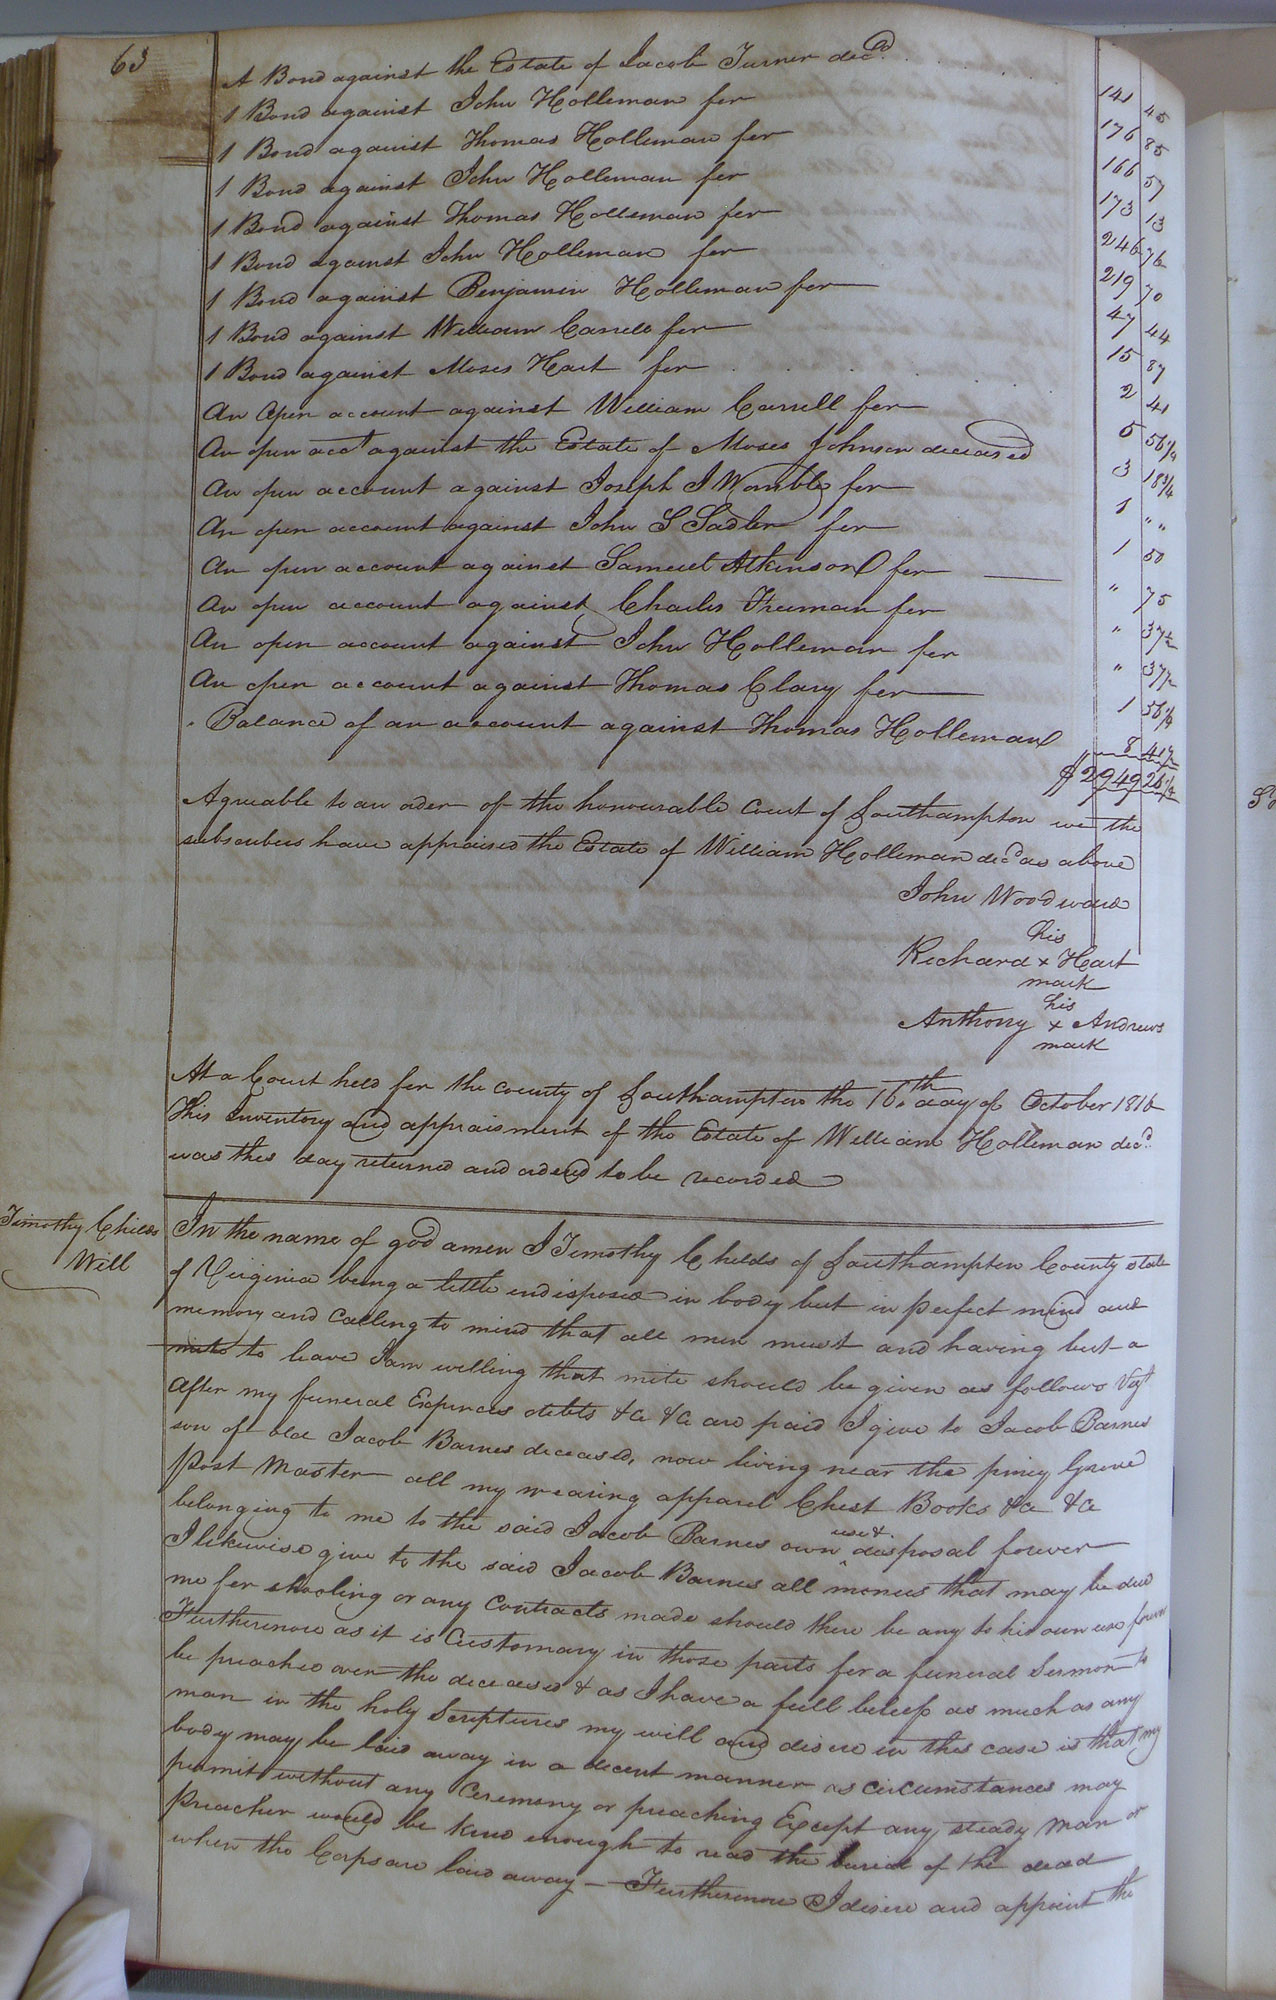 63
A Bond against the Estate of Jacob Turner decd. 141 45
1 Bond against John Holleman for 176 85
1 Bond against Thomas Holleman for 166 57
1 Bond against John Holleman for 173 13
1 Bond against Thomas Holleman for 246 76
1 Bond against John Holleman for 219 70
1 Bond against Benjamin Holleman for 47 44
1 Bond against William Carrell for 15 87
1 Bond against Moses Hart for 2 41
An Open account against William Carrell for 5 56 1/4
An open acct against the Estate of Moses Johnson deceased 3 18 3/4
An open account against Joseph J Womble for 1 " "
An open account against John S Sadler for 1 50
An open account against Samuel Atkinson for " 75
An open account against Charles Freeman for " 37 1/2
An open account against John Holleman for " 37 1/2
An open account against Thomas Clary for 1 56 1/4
Balance of an account against Thomas Holleman 8 41 1/2
$2949 26 1/4
Agreable to an oder of the honourable Court of Southampton we the
subscribers have appraised the Estate of William Holleman decd as above
John Woodward
his
Richard x Hart
mark
his
Anthony x Andrews
mark
At a Court held for the county of Southampton the 16th day of October 1816
This Inventory and appraisment of the Estate of William Holleman decd.
was this day returned and ordered to be recorded
Timothy Childs
Will
In the name of god amen I Timothy Childs of Southampton County state
of Virginia being a little indisposed in body but in perfect mind and
memory and calling to mind that all men must and having but a
mite to leave I am willing that mite should be given as follows Vizt
After my funeral Expences debts &c &c are paid I give to Jacob Barnes
son of old Jacob Barnes deceased, now living near the piney Grove
Post Master all my wearing apparel Chest Books &c &c
belonging to me to the said Jacob Barnes own use & disposal forever
I likewise give to the said Jacob Barnes all monies that may be due
me for shooling or any Contracts made should there be any to his own use forever
Furthermore as it is Customary in those parts for a funeral Sermon to
be preached over the deceased & as I have a full beleif as much as any
man in the holy Scriptures my will and disire in this case is that my
body may be laid away in a decent manner as circumstances may
permit without any Ceremony or preaching Except any steady man or
Preacher would be kind enough to read the burial of the dead
when the Corps are laid away — Furthermore I disire and appoint the